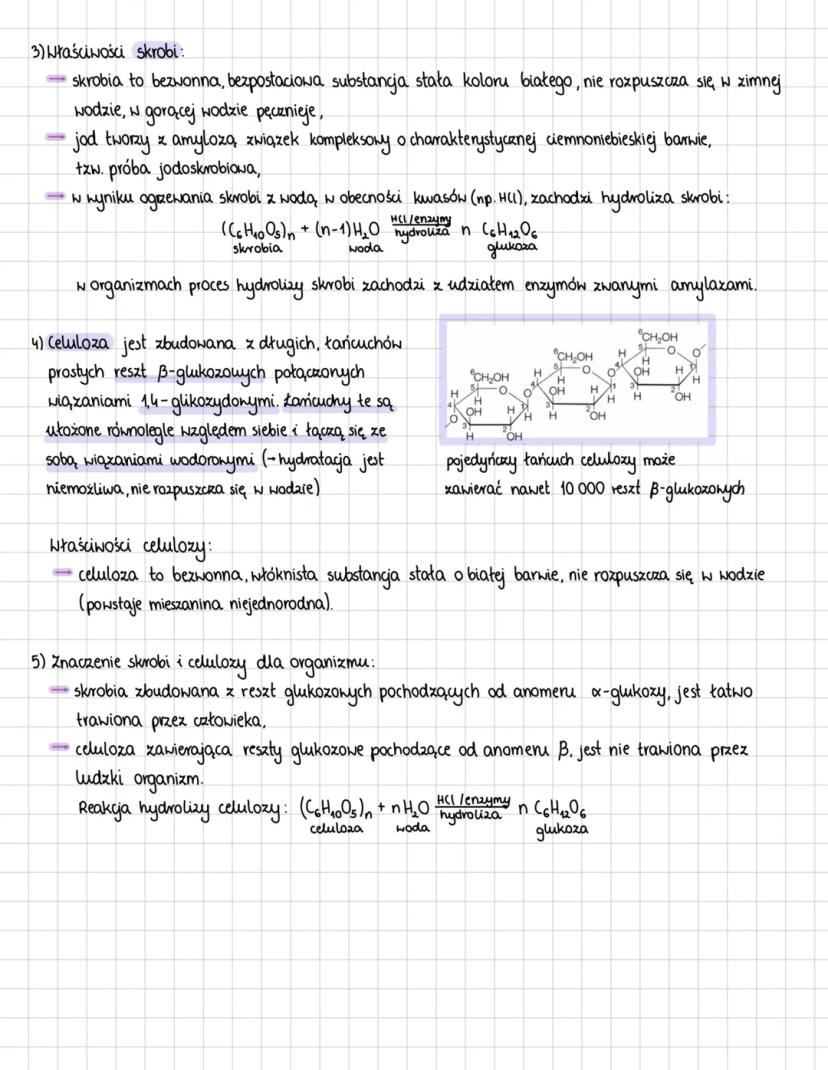 3) Właściwości skrobi:
→ skrobia to bezwonna, bezpostaciowa substancja stała koloru białego, nie rozpuszcza się w zimnej
wodzie, w gorącej wodzie pęcznieje,
→ jod tworzy z amylozą związek kompleksowy o charrakterystycznej ciemnoniebieskiej barwie,
tzw. próba jodoskrobiowa,
→ w wyniku ogrzewania skrobi z wodą w obecności kwasów (np. HCl), zachodzi hydroliza skrobi:
(C₆H₁₀O₅)n + (n-1) H₂O HCl/enzymy hydroliza n C₆H₁₂O₆
skrobia woda glukoza
w organizmach proces hydrolizy skrobi zachodzi z udziałem enzymów zwanymi amylazami.
4) Celuloza jest zbudowana z długich, łańcuchów
prostych reszt β-glukozowych połączonych
wiązaniami 1,4-glikozydowymi. Łańcuchy te są
ułożone równolegle względem siebie i łączą się ze
sobą wiązaniami wodorowymi (→ hydratacja jest
niemożliwa, nie rozpuszcza się w wodzie)
⁶CH₂OH
⁶CH₂OH
⁶CH₂OH
H H OH H H O 5 4 3 2 1 OH
H H OH H H O 5 4 3 2 1 OH
H H OH H H O 5 4 3 2 1 OH
pojedyńczy łańcuch celulozy może
zawierać nawet 10 000 reszt β-glukozowych
Właściwości celulozy:
→ celuloza to bezwonna, włóknista substancja stała o białej barwie, nie rozpuszcza się w wodzie
(powstaje mieszanina niejednorodna).
5) Znaczenie skrobi i celulozy dla organizmu:
→ skrobia zbudowana z reszt glukozowych pochodzących od anomeru α-glukozy, jest łatwo
trawiona przez człowieka,
→ celuloza zawierająca reszty glukozowe pochodzące od anomeru β, jest nie trawiona przez
ludzki organizm.
Reakcja hydrolizy celulozy: (C₆H₁₀O₅)n + n H₂O HCl/enzymy hydroliza n C₆H₁₂O₆
celuloza woda glukoza